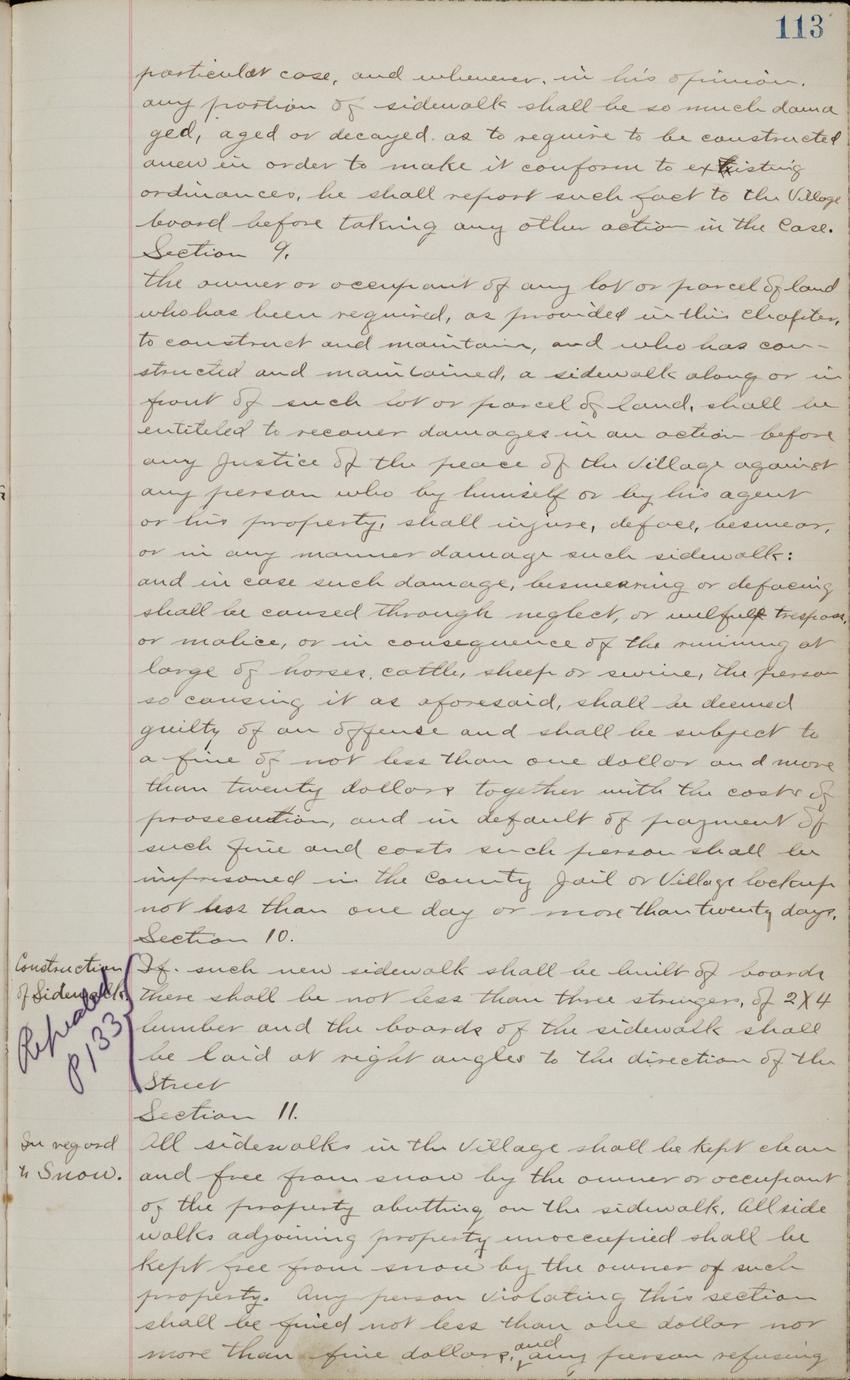 113
particular case, and whenever, in his opinion,
any portion of sidewalk shall be so much dama
ged, aged or decayed as to require to be constructed
anew in order to make it conform to existing
ordinances, he shall report such fact to the Village
board before taking any other action in the Case.
Section 9.
the owner or occupant of any lot or parcel of land
who has been required, as provided in this Chapter,
to construct and maintain, and who has con-
structed and maintained, a sidewalk along or in
front of such lot or parcel of land, shall be
entiteled to recover damages in an action before
any Justice of the peace of the Village against
any person who by himself or by his agent
or his property, shall injure, deface, besmear,
or in any manner damage such sidewalk:
and in case such damage, besmearing or defacing
shall be caused through neglect, or wilfull trespass,
or malice, or in consequence of the running at
large of horses, cattle, sheep or swine, the person
so causing it as aforesaid, shall be deemed
guilty of an offense and shall be subject to
a fine of not less than one dollar and more
than twenty dollars together with the costs of
prosecution, and in default of payment of
such fine and costs such person shall be
imprisoned in the County Jail or Village lockup
not less than one day or more than twenty days.
Section 10.
Construction
of Sidewalk.
Repealed
P 133
If such new sidewalk shall be built of boards
there shall be not less than three stringers, of 2X4
lumber and the boards of the sidewalk shall
be laid at right angles to the direction of the
Street
Section 11.
In regard
to Snow.
All sidewalks in the Village shall be kept clean
and free from snow by the owner or occupant
of the property abutting on the sidewalk. All side
walks adjoining property unoccupied shall be
kept free from snow by the owner of such
property. Any person violating this section
shall be fined not less than one dollar nor
more than five dollars, and any person refusing